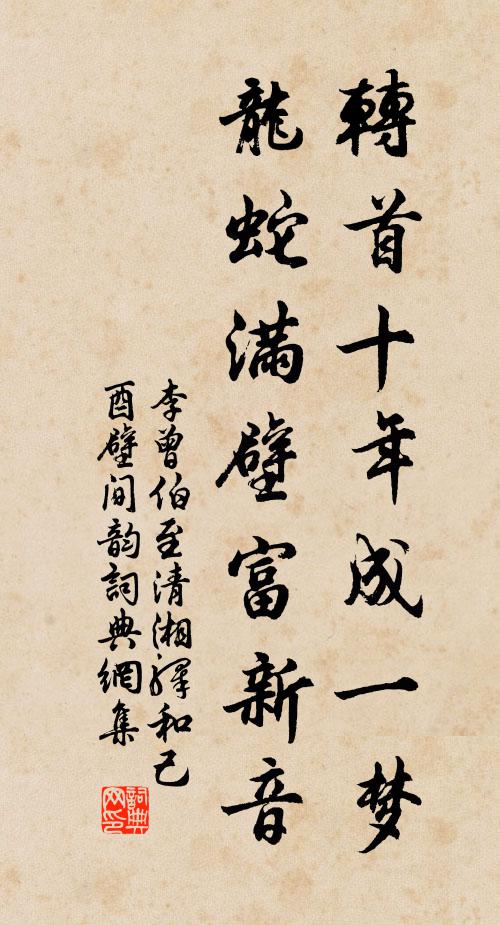 轉首十年成一梦
龍蛇滿壁富新音
李曾伯至清湘驛和己
酉壁间韵詞典網集
詞典
网印